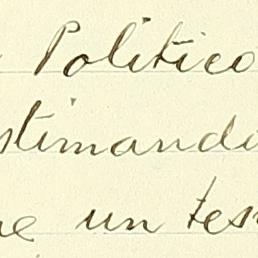 Politico
stimando
e un tes